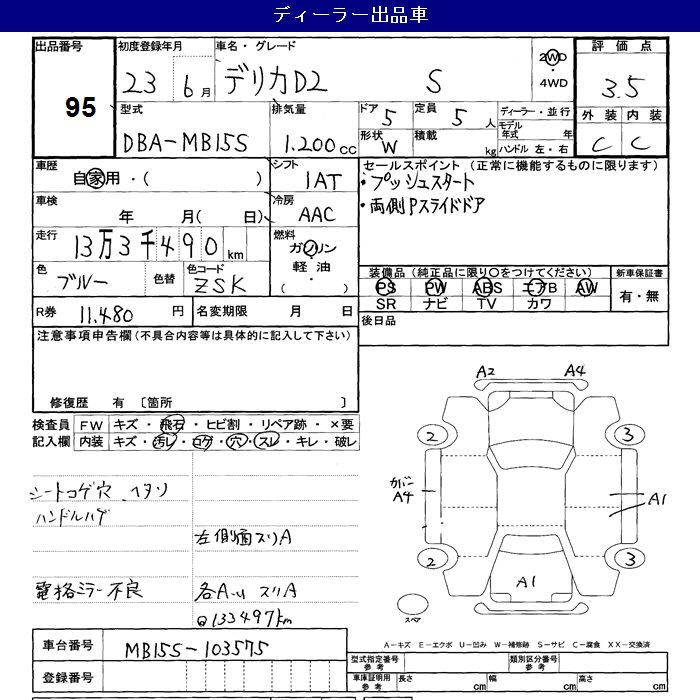 ディーラー出品車
出品番号 初度登録年月 車名・グレード 2WD 評価点
95 23 6月 デリカD2 S ・4WD 3.5
型式 排気量 ドア 5 定員 5人 ディーラー・並行 外装 内装
DBA-MB15S 1.200cc 形状 W 積載 kg モデル年式 年 C C
ハンドル 左・右
車歴 シフト セールスポイント(正常に機能するものに限ります)
自家用・( ) 1AT ・プッシュスタート
車検 冷房 ・両側Pスライドドア
年 月( 日) AAC
走行 燃料
13万3千490km ガソリン
色 色替 色コード 軽油・ 装備品(純正品に限り○をつけてください) 新車保証書
ブルー ZSK ( ) PS PW ABS エアB AW 有・無
SR ナビ TV カワ
R券 11.480円 名変期限 月 日 後日品
注意事項申告欄(不具合内容等は具体的に記入して下さい)
修復歴 有 〔箇所 〕
検査員 FW キズ・飛石・ヒビ割・リペア跡・×要
記入欄 内装 キズ・汚レ・コゲ・穴・スレ・キレ・破レ
A2 A4
2 3
シートコゲ穴 ヘタリ
ハンドルハゲ
カバーA4
A1
左側面スリA
2 3
電格ミラー不良 各A.u スリA
A1
@133497km
スペア
車台番号 MB15S-103575
A−キズ E−エクボ U−凹み W−補修跡 S−サビ C−腐食 XX−交換済
型式指定番号 参考 類別区分番号 参考
登録番号 車庫証明用 参考 長さ cm 幅 cm 高さ cm